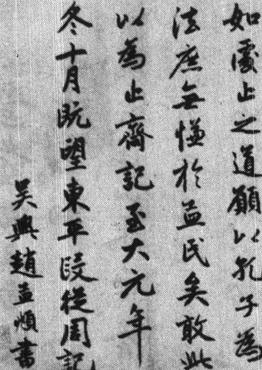 如處止之道願以孔子為
法庶無愧於益民矣敢此
以為止齋記至大元年
冬十月既望東平段從周記
吳興趙孟頫書